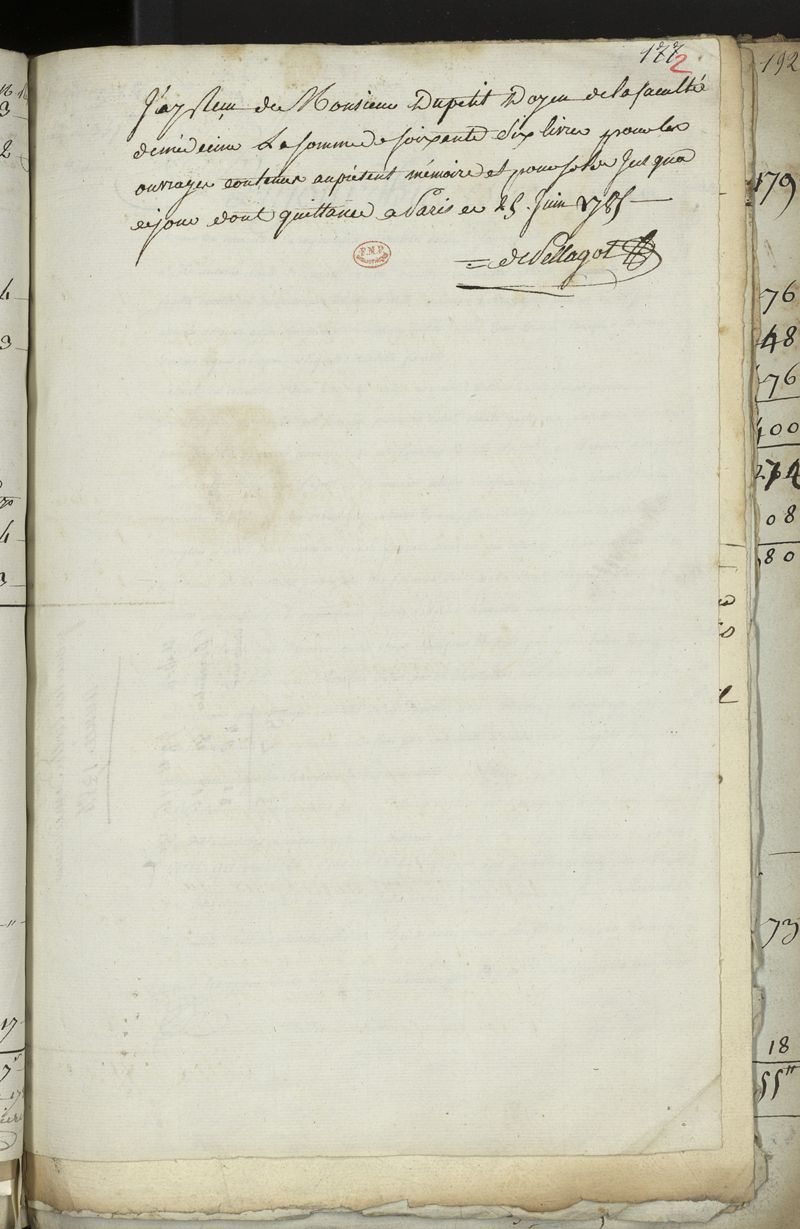 177
2
J'ay Reçu de Monsieur Dupetit Doyen de la faculté
de médecine La somme de soixante Six livres pour les
ouvrages contenus au présent mémoire et pour solde Jusqua
ce jour dont quittance a Paris ce 25 Juin 1785
de Vellagot
192
179
76
48
76
400
274
08
80
73
18
55"